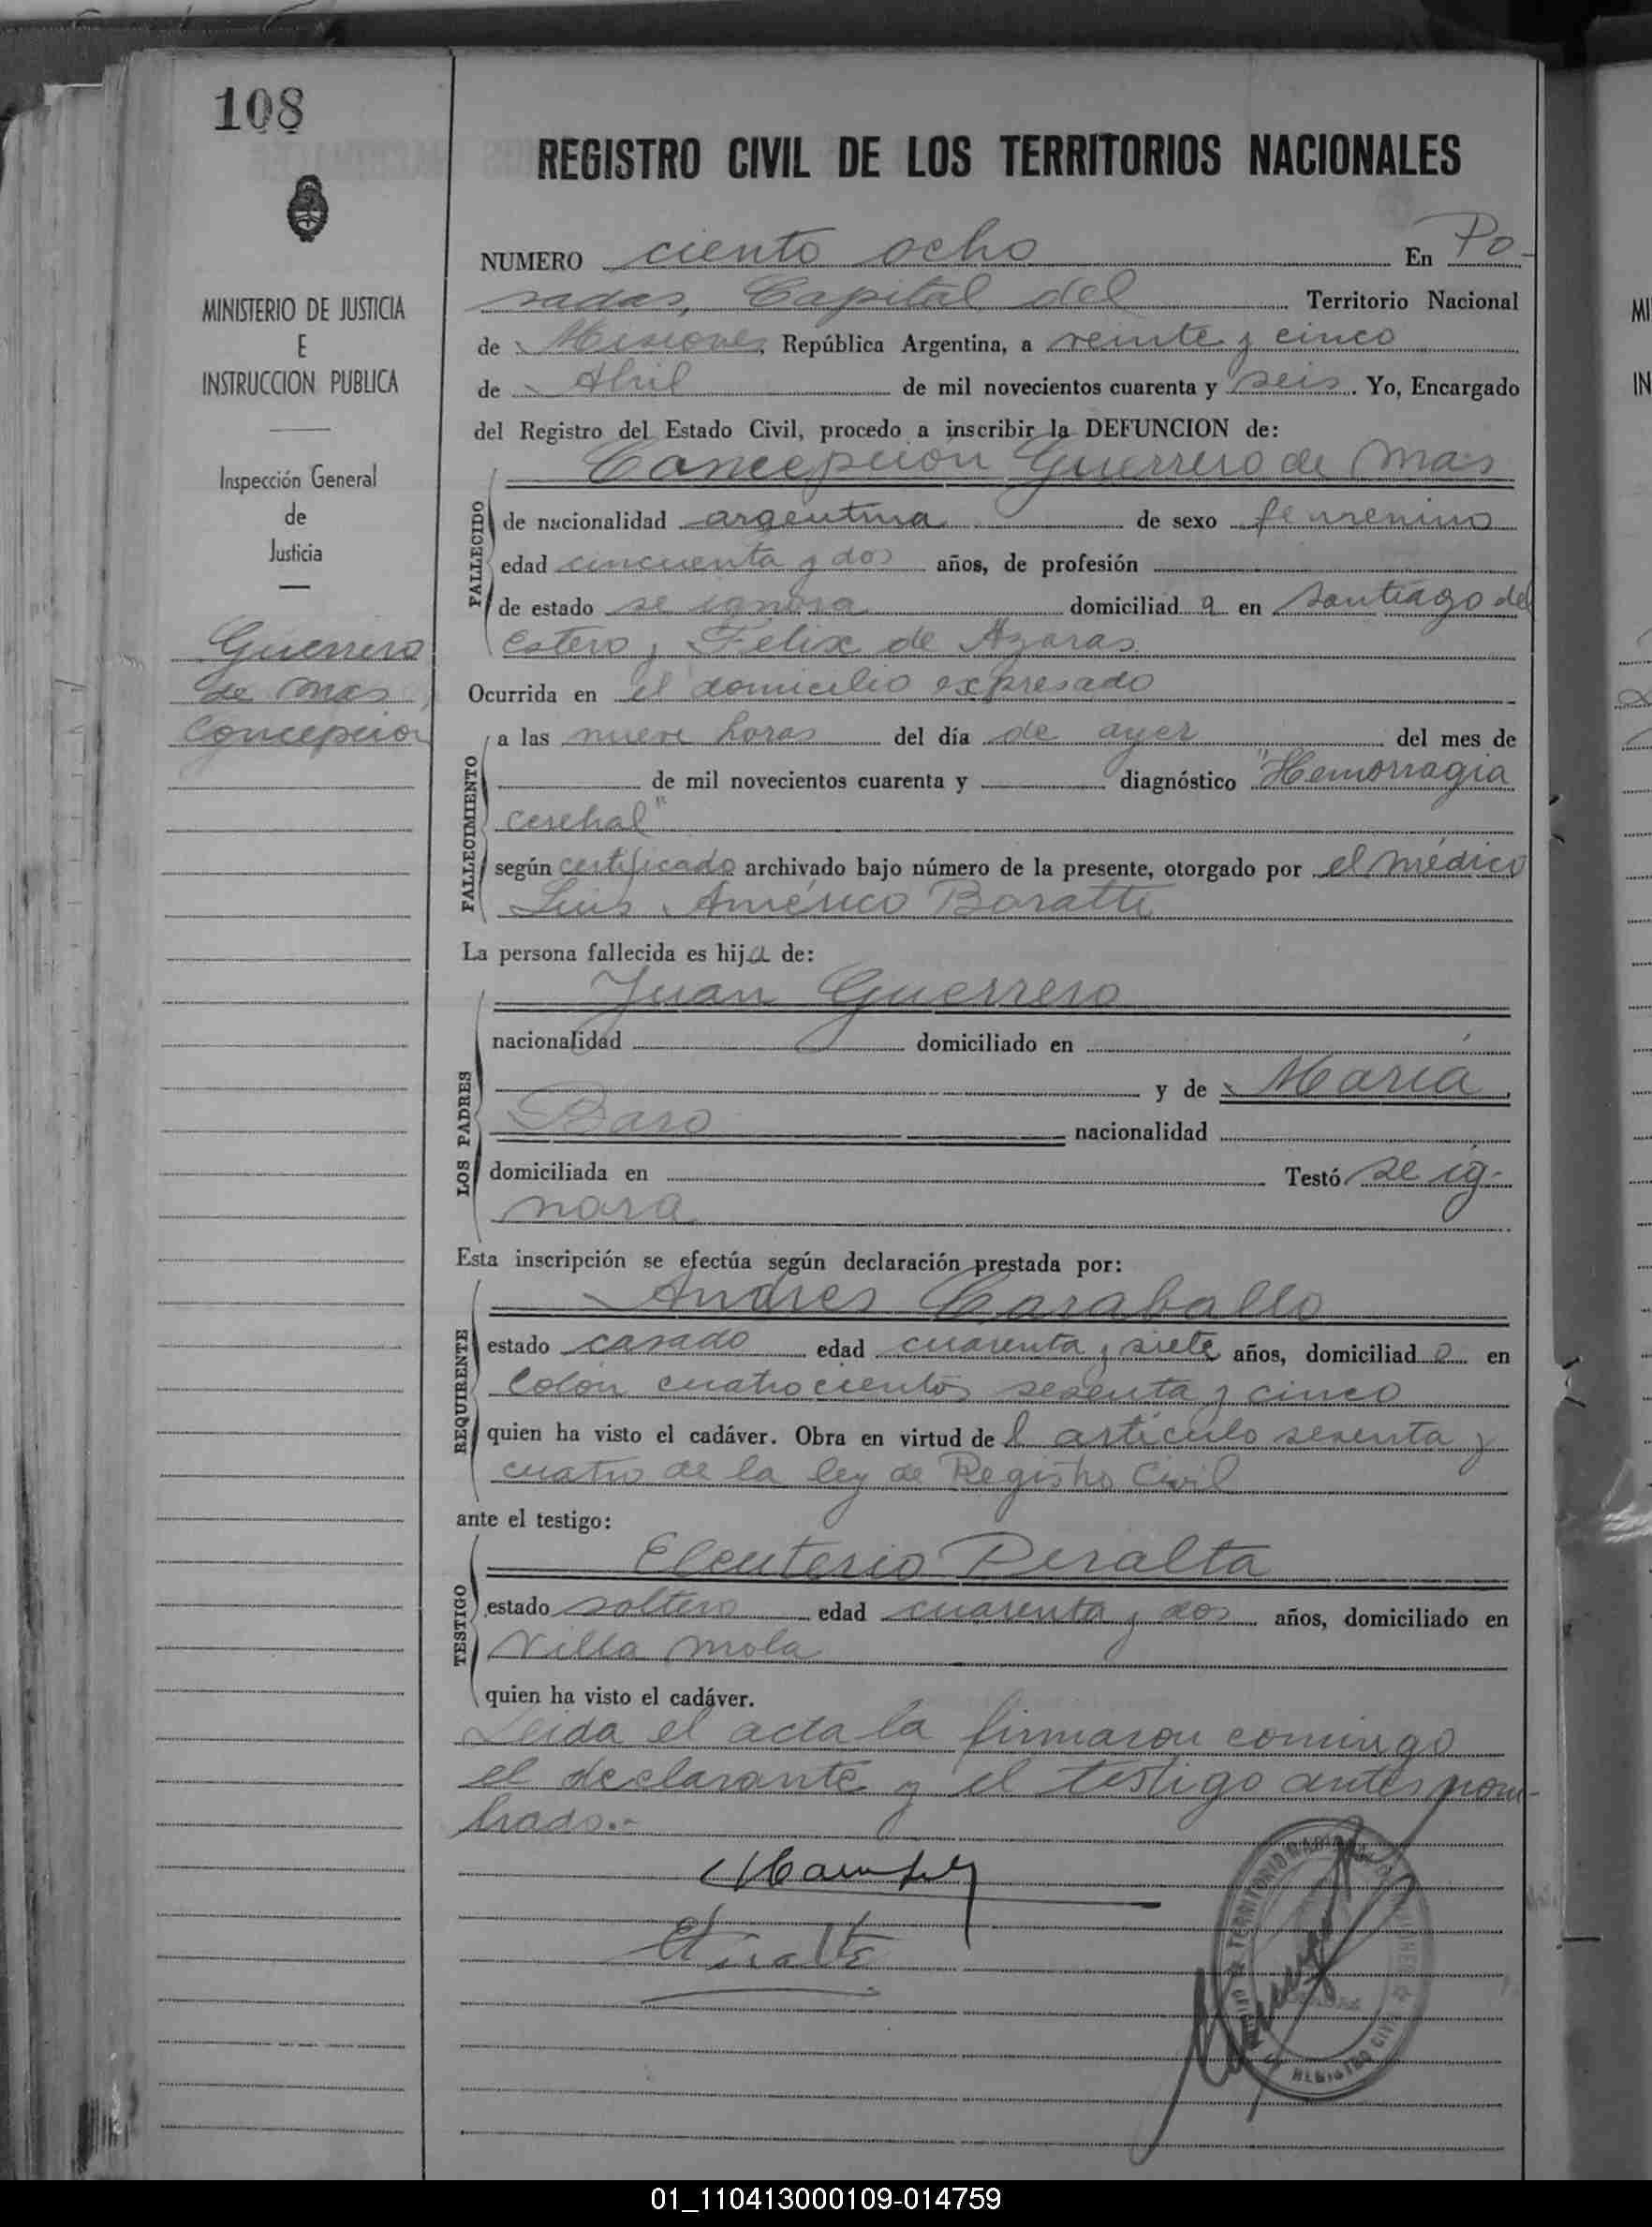 108
REGISTRO CIVIL DE LOS TERRITORIOS NACIONALES
MINISTERIO DE JUSTICIA
E
INSTRUCCION PUBLICA
Inspección General
de
Justicia
Guerrero
de Mas,
Concepcion
NUMERO ciento ocho En Po-
sadas, Capital del Territorio Nacional
de Misiones, República Argentina, a veinte y cinco
de Abril de mil novecientos cuarenta y seis. Yo, Encargado
del Registro del Estado Civil, procedo a inscribir la DEFUNCION de:
Concepción Guerrero de Mas
FALLECIDO
de nacionalidad argentina de sexo femenino
edad cincuenta y dos años, de profesión
de estado se ignora domiciliad a en Santiago del
Estero y Felix de Azaras
Ocurrida en el domicilio expresado
FALLECIMIENTO
a las nueve horas del día de ayer del mes de
de mil novecientos cuarenta y diagnóstico "Hemorragia
cerebral"
según certificado archivado bajo número de la presente, otorgado por el médico
Luis Américo Baratti
La persona fallecida es hija de:
LOS PADRES
Juan Guerrero
nacionalidad domiciliado en
y de María
Baro nacionalidad
domiciliada en Testó se ig-
nora
Esta inscripción se efectúa según declaración prestada por:
REQUIRENTE
Andres Caraballo
estado casado edad cuarenta y siete años, domiciliad o en
Colón cuatrocientos sesenta y cinco
quien ha visto el cadáver. Obra en virtud del artículo sesenta y
cuatro de la ley de Registro Civil
ante el testigo:
TESTIGO
Eleuterio Peralta
estado soltero edad cuarenta y dos años, domiciliado en
Villa Mola
quien ha visto el cadáver.
Leida el acta la firmaron conmigo
el declarante y el testigo antes nom-
brado.-
EPeralta
TERRITORIO
REGISTRO CIVIL
01_110413000109-014759